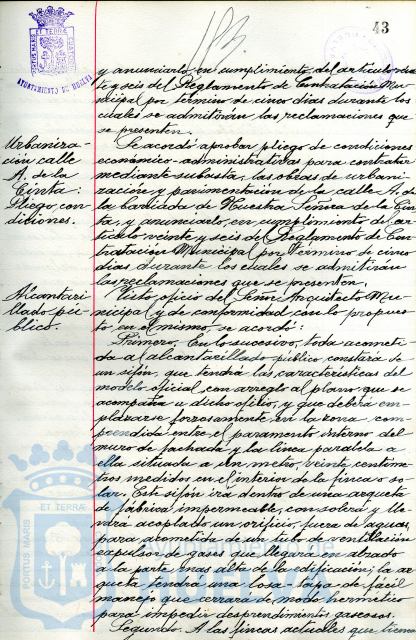 43
PORTUS MARIS ET TERRÆ CUSTODIA
AYUNTAMIENTO DE HUELVA
y anunciarlo, en cumplimiento del artículo vein
te y seis del Reglamento de Contratación Mu-
nicipal por término de cinco días durante los
cuales se admitirán las reclamaciones que
se presenten.
Urbaniza-
ción calle
A. de la
Cinta:
Pliego con-
diciones.
Se acordó aprobar pliego de condiciones
económico-administrativas para contratar
mediante subasta, las obras de urbani-
zación y pavimentación de la calle A. de
la barriada de Nuestra Señora de la Cin-
ta, y anunciarlo, en cumplimiento del ar-
tículo veinte y seis del Reglamento de Con-
tratación Municipal por término de cinco
días durante los cuales se admitirán
las reclamaciones que se presenten.
Alcantari-
llado pú-
blico.
Visto oficio del Señor Arquitecto Mu-
nicipal y de conformidad con lo propues-
to en el mismo, se acordó:
Primero. En lo sucesivo, toda acometi-
da al alcantarillado público constará de
un sifón, que tendrá las características del
modelo oficial con arreglo al plano que se
acompaña a dicho oficio, y que deberá em-
plazarse forzosamente en la zona com-
prendida entre el paramento interno del
muro de fachada y la línea paralela a
ella situada a un metro, veinte centíme-
tros medidos en el interior de la finca o so-
lar. Este sifón irá dentro de una arqueta
de fábrica impermeable, con solera y lle-
vará acoplado un orificio, fuera de aguas,
para acometida de un tubo de ventilación
expulsor de gases que llegará en alzado
a la parte mas alta de la edificación; la ar-
queta tendrá una losa tapa de fácil
manejo que cerrará de modo hermético
para impedir desprendimientos gaseosos.
Segundo. A las fincas actuales que tie
PORTUS MARIS ET TERRÆ